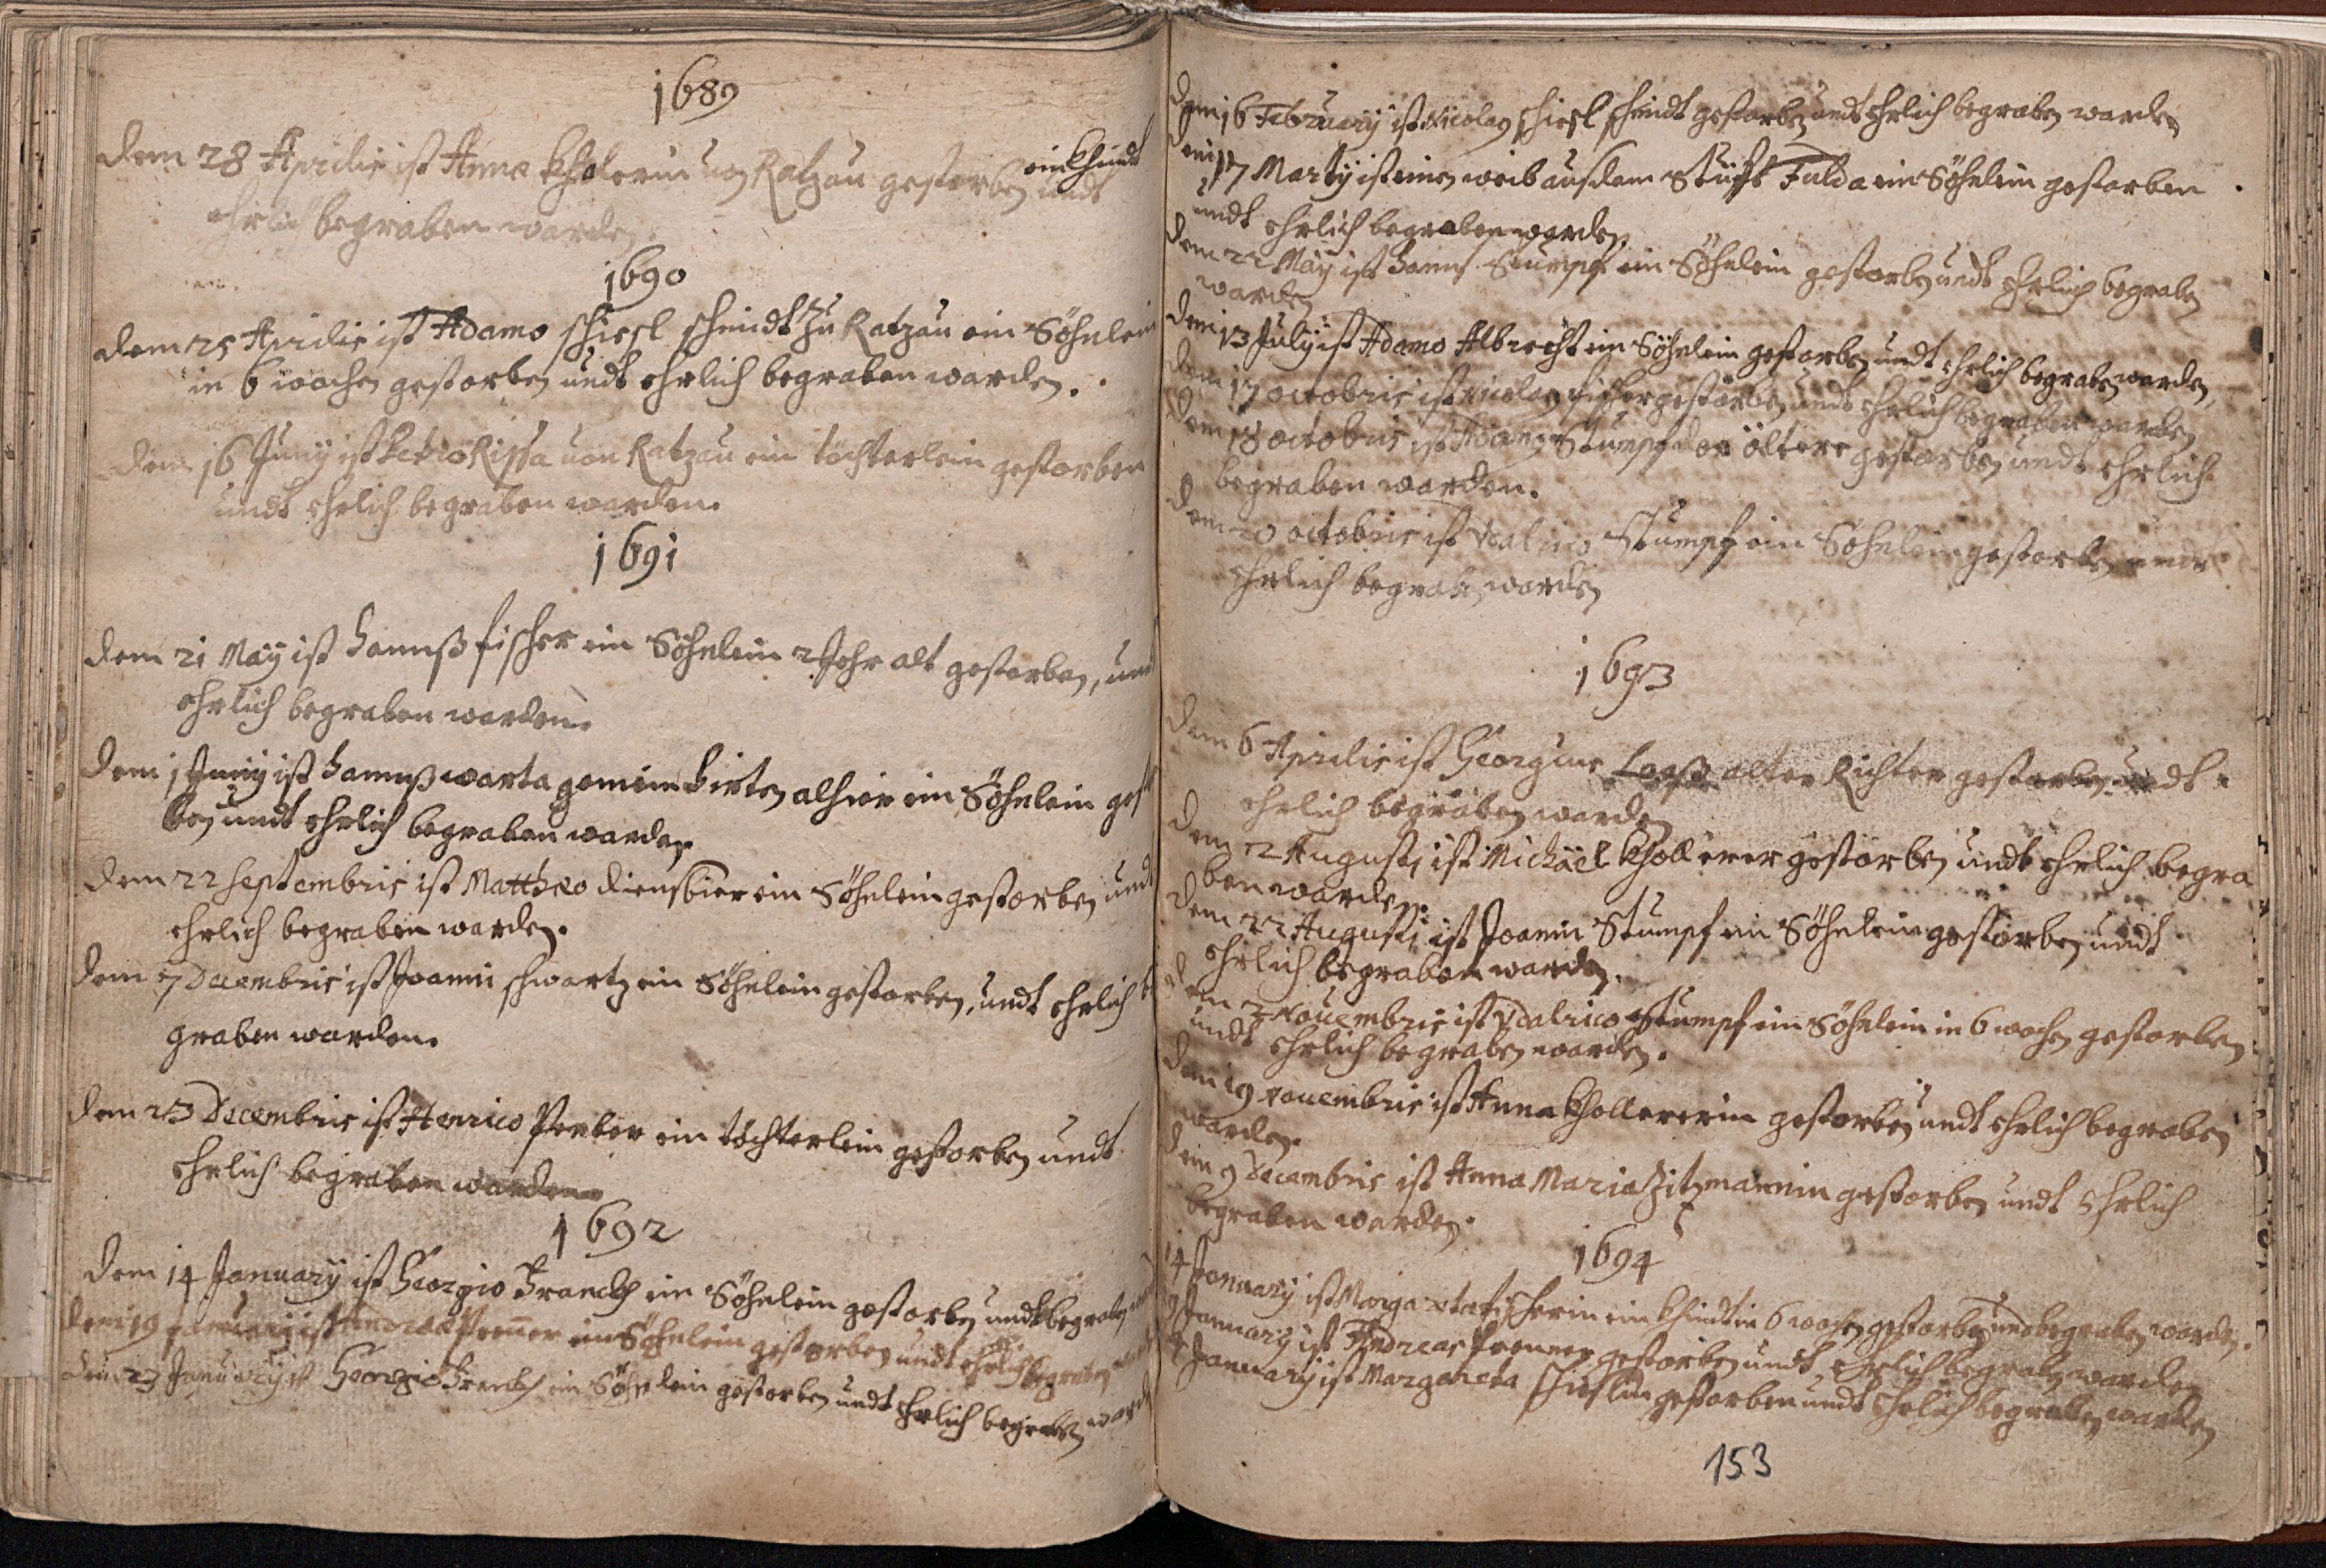 1689
Dem 28 Aprilis ist Anna Kholerin von Ratzau gestorben ein Khindt undt
ehrlich begraben warden.
1690
Dem 25 Aprilis ist Adamo schiesl schmidt zu Ratzau ein Söhnlein
in 6 wochen gestorben undt ehrlich begraben warden.
Dem 16 Juny ist Petro Rissa von Ratzau ein töchterlein gestorben
undt ehrlich begraben warden.
1691
Dem 21 May ist Hannß fischer ein Söhnlein 2 Jahr alt gestorben, und
ehrlich begraben warden.
Dem 1 Juny ist Hannß warta gemein Hirten alhier ein Söhnlein gestor
ben undt ehrlich begraben warden.
Dem 22 septembris ist Mattheo diensbier ein Söhnlein gestorben undt
ehrlich begraben warden.
Dem 7 Decembris ist Joanni schwartz ein Söhnlein gestorben, undt ehrlich be
graben warden.
Dem 23 Decembris ist Henrico Perber ein töchterlein gestorben undt
ehrlich begraben warden
1692
Dem 14 January ist Georgio Franckh ein Söhnlein gestorben undt begraben
Dem 19 January ist Andrea Prenner ein Söhnlein gestorben undt ehrlich begraben
Dem 23 January ist Georgio Franckh ein Söhnlein gestorben undt ehrlich begraben ward
Dem 16 February ist Nicolaus schiesl schmidt gestorben undt Ehrlich begraben warden
Dem 17 Marty ist einen weib aus dem Stüfft Fulda ein Söhnlein gestorben
undt ehrlich begraben warden.
Dem 22 May ist Hanns Stumpf ein Söhnlein gestorben undt ehrlich begraben
warden
Dem 13 July ist Adamo Albrecht ein Söhnlein gestorben undt ehrlich begraben warden,
Dem 17 octobris ist Nicolaus fischer gestorben undt ehrlich begraben warden
Dem 18 octobris ist Adam Stumpf der öltere gestorben undt ehrlich
begraben warden.
Dem 20 octobris ist Vdalrico Stumpf ein Söhnlein gestorben undt
ehrlich begraben warden
1693
Dem 6 Aprilis ist Georgius alter Richter gestorben undt
ehrlich begraben warden
Dem 2 Augusti ist Michäel Khollerer gestorben undt ehrlich begra
ben warden.
Dem 22 Augusti ist Joanni Stumpf ein Söhnlein gestorben undt
ehrlich begraben warden.
Dem 2 Nouembris ist Vdalrico Stumpf ein Söhnlein in 6 wochen gestorben
undt ehrlich begraben warden.
Dem 19 Nouembris ist Anna Khollererin gestorben undt ehrlich begraben
warden.
Dem 9 Decembris ist Anna Maria Zitzmannin gestorben undt Ehrlich
begraben warden.
1694
14 January ist Margareta fischerin ein Khindt in 6 wochen gestorben undt begraben warden.
January ist Andreas Prenner gestorben undt Ehrlich begraben warden
January ist Margareta schieslin gestorben undt Ehrlich begraben warden
153